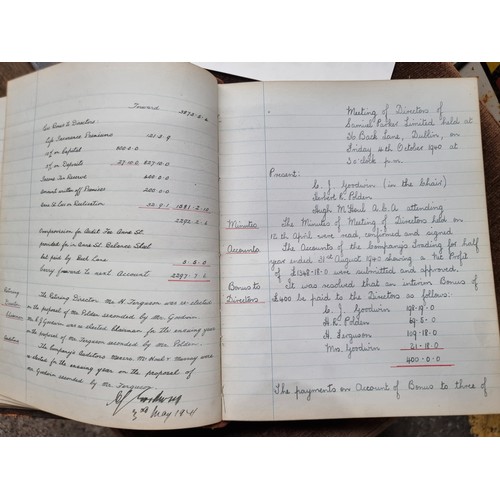 Forward
Less Bonus to Directors
Life Insurance Premiums
% on Capital
% on Deposits
Income Tax Reserve
Amount written off Premises
Loss on Realisation
2292.2.6
Compensation for
provided for in Balance Sheet
not paid by Back Lane
Carry forward to next Account 2297.7.6
Retiring
Director
The Retiring Director Mr. H. Ferguson was re-elected
on the proposal of Mr Polden seconded by Mr Goodwin.
Mr C J Goodwin was elected Chairman for the ensuing year
on the proposal of Mr Polden.
The Company's Auditors Messrs.
elected for the ensuing year on the proposal of
Mr Goodwin seconded by Mr Ferguson.
3rd May 1941
Meeting of Directors of
Samuel Parker Limited held at
36 Back Lane, Dublin, on
Friday 4th October 1940 at
3 o'clock p.m.
Present:
C. J. Goodwin (in the Chair)
Herbert K. Polden
Hugh M. A.C.A. attending
Minutes The Minutes of Meeting of Directors held on
12th April were read, confirmed and signed
Accounts The Accounts of the Company's Trading for half
year ended 31st August 1940 showing a Net Profit
of £1348.18.0 were submitted and approved.
Bonus to It was resolved that an interim Bonus of
Directors £400 be paid to the Directors as follows:-
C. J. Goodwin 198.19.0
H. K. Polden 69.5.0
H. Ferguson 109.18.0
Mrs. Goodwin 21.18.0
400.0.0
The payments on Account of Bonus to three of